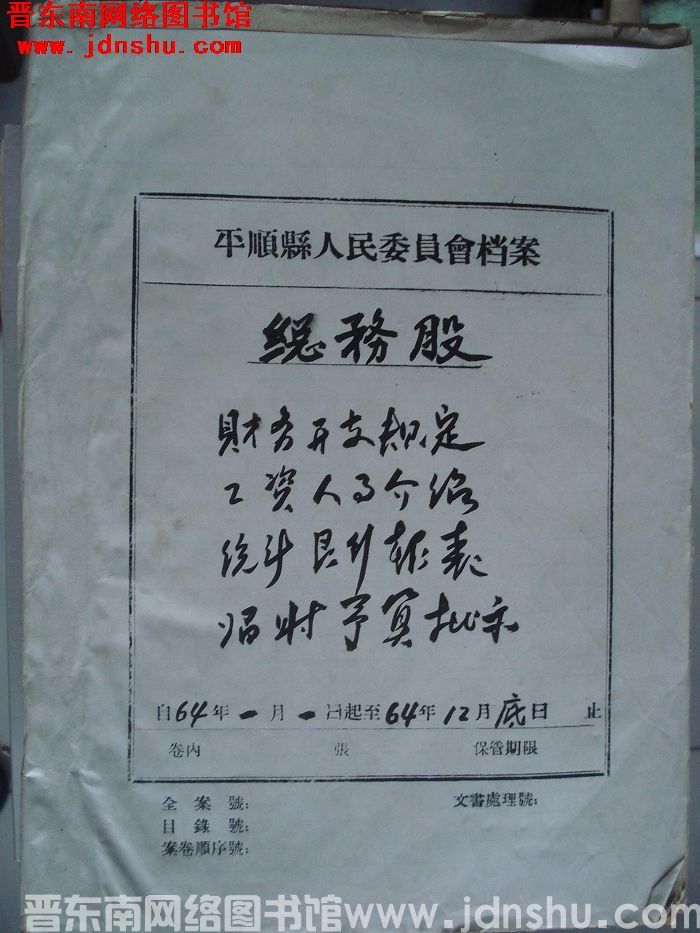 晋东南网络图书馆
www.jdnshu.com
平順縣人民委員會档案
総務股
財务开支規定
工資人事介绍
统计 報表
临时予算批示
自64年一月一日起至64年12月底日 止
卷内 張 保管期限
全案號:
文書處理號:
目錄號:
案卷順序號:
晋东南网络图书馆www.jdnshu.com